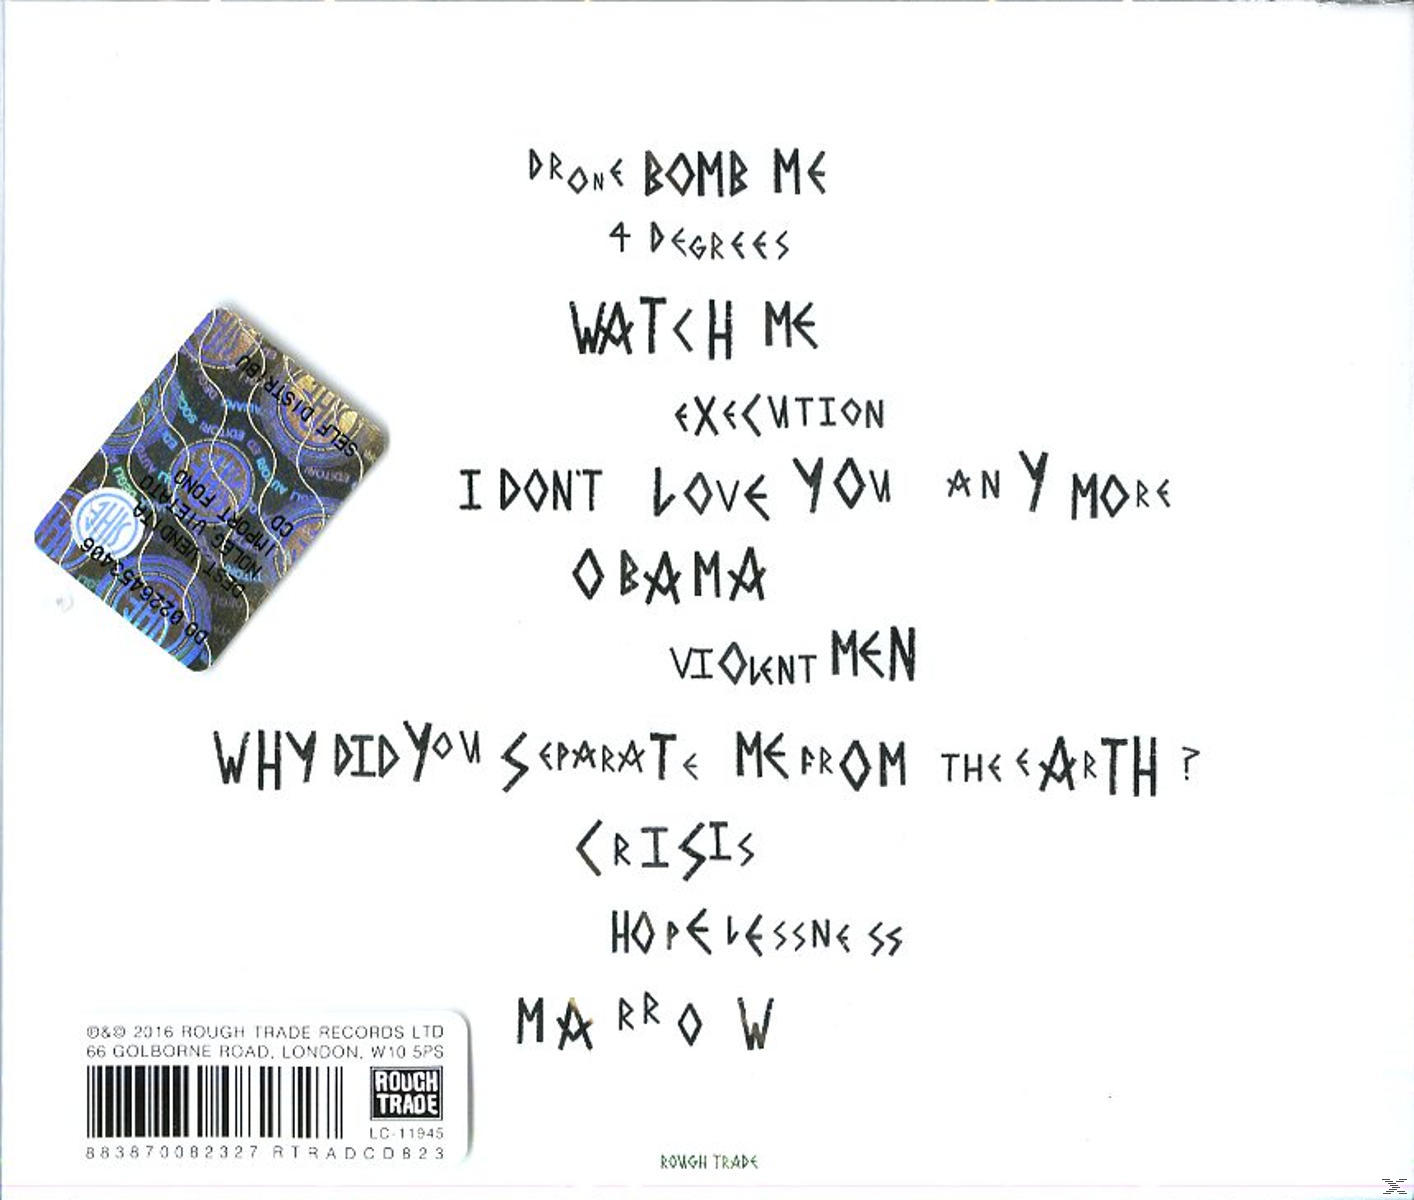 DRONE BOMB ME
4 DEGREES
WATCH ME
EXECUTION
I DON'T LOVE YOU ANYMORE
OBAMA
VIOLENT MEN
WHY DID YOU SEPARATE ME FROM THE EARTH?
CRISIS
HOPELESSNESS
MARROW
SELF DISTRIBU
CD
IMPORT FOND
NOLEG. VIETATO
DEST. VENDITA
DD 0226453406
SIAE
©&℗ 2016 ROUGH TRADE RECORDS LTD
66 GOLBORNE ROAD, LONDON, W10 5PS
ROUGH
TRADE
LC-11945
883870082327 RTRADCD823
ROUGH TRADE